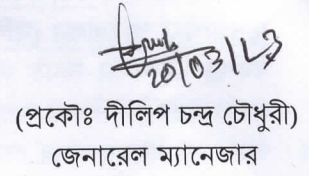 20/03/23
(প্রকৌঃ দীলিপ চন্দ্র চৌধুরী)
জেনারেল ম্যানেজার